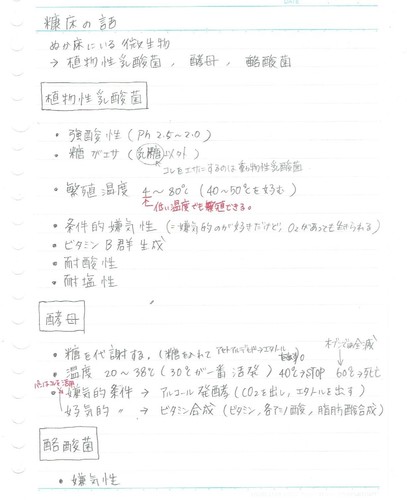 糠床の話
ぬか床にいる微生物
→ 植物性乳酸菌, 酵母, 酪酸菌
植物性乳酸菌
・強酸性 (Ph 2.5~2.0)
・糖がエサ (乳糖以外)
コレをエサにするのは動物性乳酸菌
・繁殖温度 4~80℃ (40~50℃を好む)
低い温度でも繁殖できる。
・条件的嫌気性 (=嫌気的のが好きだけど, O₂があっても
・ビタミンB群生成
・耐酸性
・耐塩性
酵母
・糖を代謝する. (糖を入れて アセトアルデヒド→エタノール
・温度 20~38℃ (30℃が一番活発) 40℃→STOP 60℃→死亡
・嫌気的条件 → アルコール発酵 (CO₂を出し, エタノールを出す)
好気的 〃 → ビタミン合成 (ビタミン, 各アミノ酸, 脂肪酸合成)
酪酸菌
・嫌気性